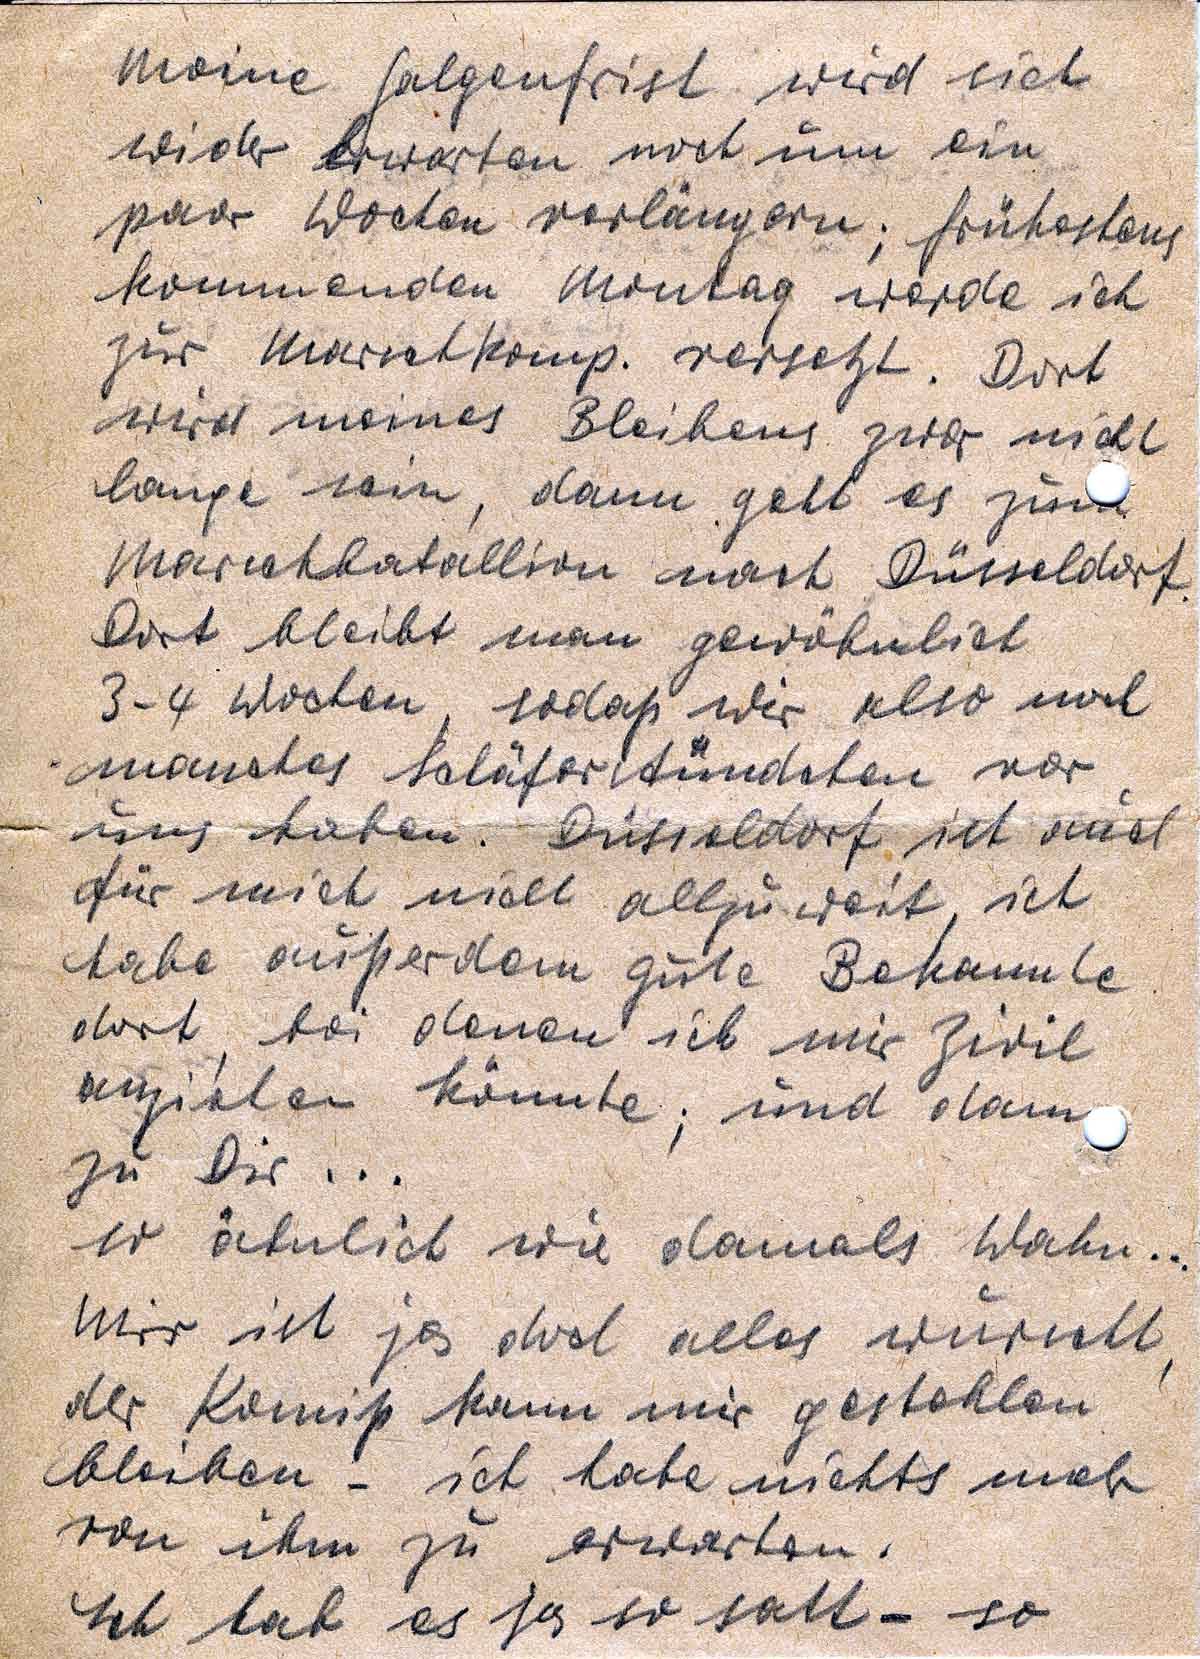 Meine Galgenfrist wird sich
wider Erwarten noch um ein
paar Wochen verlängern; frühestens
kommenden Montag werde ich
zur Marschkomp. versetzt. Dort
wird meines Bleibens zwar nicht
lange sein, dann geht es zum
Marschbatallion nach Düsseldorf.
Dort bleibt man gewöhnlich
3-4 Wochen, sodaß wir also noch
manches Schäferstündchen vor
uns haben. Düsseldorf ist auch
für mich nicht allzuweit, ich
habe außerdem gute Bekannte
dort, bei denen ich mir Zivil
anziehen könnte; und dann
zu Dir...
so ähnlich wie damals Wahn..
Mir ist ja doch alles wurscht,
der Komiß kann mir gestohlen
bleiben - ich habe nichts mehr
von ihm zu erwarten.
Ich hab es ja so satt - so